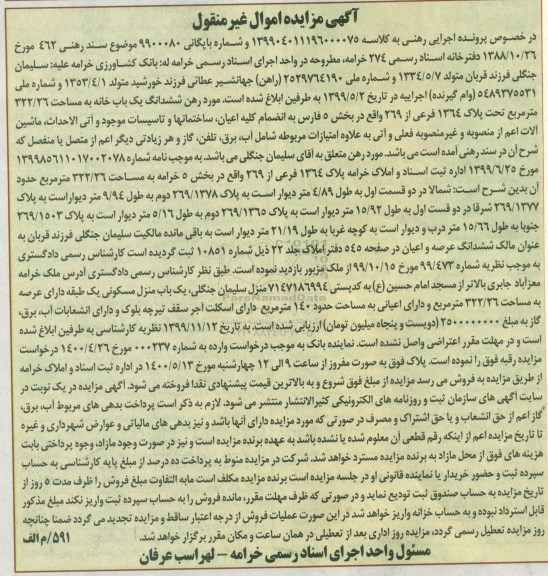 آگهی مزایده اموال غیرمنقول
در خصوص پرونده اجرایی رهنی به کلاسه ۱۳۹۹۰۴۰۱۱۱۹۶۰۰۰۰۷۵ و شماره بایگانی ۹۹۰۰۰۸۰ موضوع سند رهنی ۴۶۲ مورخ
۱۳۸۸/۱۰/۲۶ دفترخانه اسناد رسمی ۲۷۴ خرامه، مطروحه در واحد اجرای اسناد رسمی خرامه له: بانک کشاورزی خرامه علیه: سلیمان
جنگلی فرزند قربان متولد ۱۳۳۴/۵/۷ و شماره ملی ۲۵۲۹۷۶۴۱۹۰ (راهن) جهانشیر عطائی فرزند خورشید متولد ۱۳۵۳/۴/۱ و شماره ملی
۵۴۸۹۳۷۵۵۳۱ (وام گیرنده) اجراییه در تاریخ ۱۳۹۹/۵/۲ به طرفین ابلاغ شده است. مورد رهن ششدانگ یک باب خانه به مساحت ۳۲۲/۲۶
مترمربع تحت پلاک ۱۳۶۴ فرعی از ۲۶۹ واقع در بخش ۵ فارس به انضمام کلیه اعیان، ساختمانها و تاسیسات موجود و آتی الاحداث، ماشین
آلات اعم از منصوبه و غیرمنصوبه فعلی و آتی به علاوه امتیازات مربوطه شامل آب، برق، تلفن، گاز و هر زیادتی دیگر اعم از متصل یا منفصل که
شرح آن در سند رهنی آمده است می باشد. مورد رهن متعلق به آقای سلیمان جنگلی می باشد. به موجب نامه شماره ۱۳۹۹۸۵۶۱۱۰۱۷۰۰۲۰۷۸
مورخ ۱۳۹۹/۶/۲۵ اداره ثبت اسناد و املاک خرامه پلاک ۱۳۶۴ فرعی از ۲۶۹ واقع در بخش ۵ خرامه به مساحت ۳۲۲/۲۶ مترمربع حدود
آن بدین شرح است: شمالا در دو قسمت اول به طول ۴/۸۹ متر دیوار است به پلاک ۲۶۹/۱۳۷۸ دوم به طول ۹/۹۴ متر دیوار است به پلاک
۲۶۹/۱۳۷۷ شرقا در دو قسمت اول به طول ۱۵/۹۲ متر دیوار است به پلاک ۲۶۹/۱۳۶۵ دوم به طول ۵/۱۶ متر دیوار است به پلاک ۲۶۹/۱۵۰۳
جنوبا به طول ۱۵/۶۶ متر درب و دیوار است به کوچه غربا به طول ۲۱/۱۹ متر دیوار است به باقی مانده مالکیت سلیمان جنگلی فرزند قربان به
عنوان مالک ششدانگ عرصه و اعیان در صفحه ۵۴۵ دفتر املاک جلد ۲۲ ذیل شماره ۱۰۸۵۱ ثبت گردیده است کارشناس رسمی دادگستری
به موجب نظریه شماره ۹۹/۴۷۳ مورخ ۹۹/۱۰/۱۵ از ملک مزبور بازدید نموده است. طبق نظر کارشناس رسمی دادگستری آدرس ملک خرامه
معزآباد جابری بالاتر از مسجد امام حسین (ع) به کدپستی ۷۱۴۷۱۸۶۹۹۴ منزل سلیمان جنگلی، یک باب منزل مسکونی یک طبقه دارای عرصه
به مساحت ۳۲۲/۲۶ مترمربع و دارای اعیانی به مساحت حدود ۱۴۰ مترمربع دارای اسکلت آجر سقف تیرچه بلوک و دارای انشعابات آب، برق،
گاز به مبلغ ۲۵۰۰۰۰۰۰۰۰ (دویست و پنجاه میلیون تومان) ارزیابی شده است. به تاریخ ۱۳۹۹/۱۱/۱۲ نظریه کارشناسی به طرفین ابلاغ شده
است و در مهلت مقرر اعتراضی واصل نشده است. نماینده بانک به موجب درخواست وارده به شماره ۰۰۰۲۳۷ مورخ ۱۴۰۰/۴/۲۶ درخواست
مزایده رقبه فوق را نموده است. پلاک فوق به صورت مفروز از ساعت ۹ الی ۱۲ چهارشنبه مورخ ۱۴۰۰/۵/۱۳ در اداره ثبت اسناد و املاک خرامه
از طریق مزایده به فروش می رسد مزایده از مبلغ فوق شروع و به بالاترین قیمت پیشنهادی نقدا فروخته می شود. آگهی مزایده در یک نوبت در
سایت آگهی های سازمان ثبت و روزنامه های الکترونیکی کثیرالانتشار منتشر می شود. لازم به ذکر است پرداخت بدهی های مربوط آب، برق،
گاز اعم از حق انشعاب و یا حق اشتراک و مصرف در صورتی که مورد مزایده دارای آنها باشد و نیز بدهی های مالیاتی و عوارض شهرداری و غیره
تا تاریخ مزایده اعم از اینکه رقم قطعی آن معلوم شده یا نشده باشد به عهده برنده مزایده است و نیز در صورت وجود مازاد، وجوه پرداختی بابت
هزینه های فوق از محل مازاد به برنده مزایده مسترد خواهد شد. شرکت در مزایده منوط به پرداخت ده درصد از مبلغ پایه کارشناسی به حساب
سپرده ثبت و حضور خریدار یا نماینده قانونی او در جلسه مزایده است برنده مزایده مکلف است مابه التفاوت مبلغ فروش را ظرف مدت ۵ روز از
تاریخ مزایده به حساب صندوق ثبت تودیع نماید و در صورتی که ظرف مهلت مقرر، مانده فروش را به حساب سپرده ثبت واریز نکند مبلغ مذکور
قابل استرداد نبوده و به حساب خزانه واریز خواهد شد در این صورت عملیات فروش از درجه اعتبار ساقط و مزایده تجدید می گردد ضمنا چنانچه
روز مزایده تعطیل رسمی گردد، مزایده روز اداری بعد از تعطیلی در همان ساعت و مکان مقرر برگزار خواهد شد.
۵۹۱/م الف
مسئول واحد اجرای اسناد رسمی خرامه - لهراسب عرفان